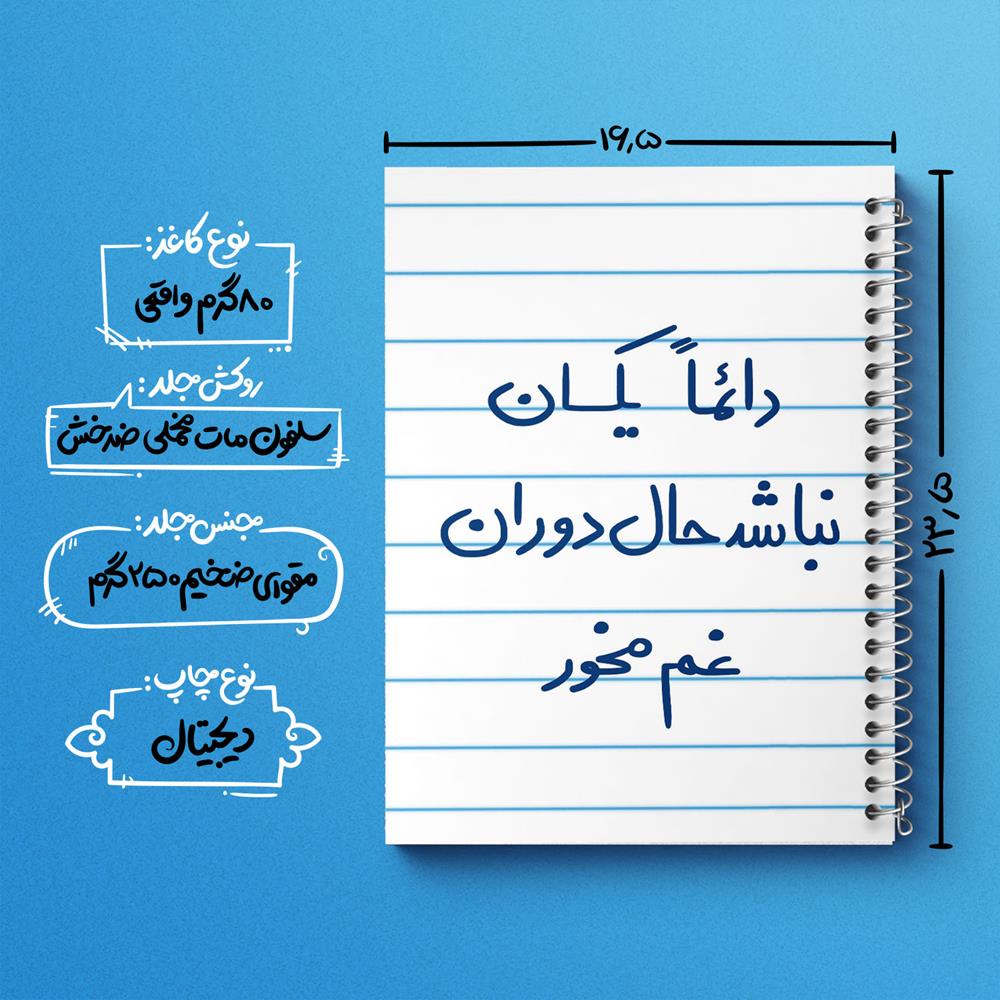 ۱۶٫۵
۲۳٫۵
دائماً یکسان
نباشد حال دوران
غم مخور
نوع کاغذ:
۸۰ گرم واقعی
روکش جلد:
سلفون مات مخملی ضدخش
جنس جلد:
مقوای ضخیم ۲۵۰ گرم
نوع چاپ:
دیجیتال